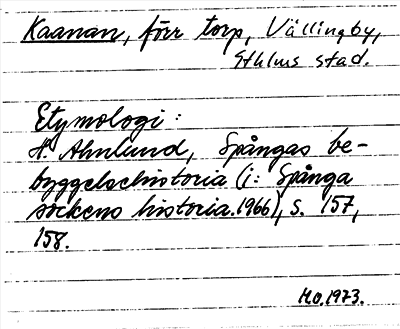 Kaanan, förr torp, Vällingby,
Sthlms stad.
Etymologi:
H. Ahnlund, Spångas be-
byggelsehistoria (i: Spånga
sockens historia.1966), s. 157,
158.
M.O.1973.